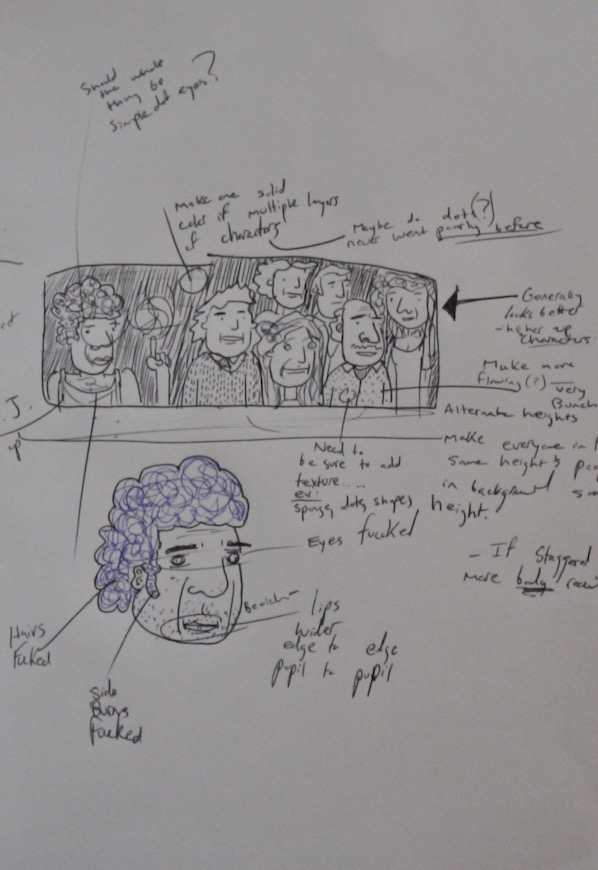 Should
the whole
thing be
simple dot eyes?
Make one solid
color if multiple layers
of characters
Maybe do dots(?)
never went poorly before
Generally
looks better
- higher up
characters
Make more
flowing(?)
very
Bunch
Alternate heights
Make everyone in
same height & peo
in background
height.
Need to
be sure to add
texture....
ex:
dots, shapes
J.
Eyes fucked
- If Staggered
More body
Beard
lips
wider
edge to edge
pupil to pupil
Hairs
Fucked
Side
Burns
Fucked